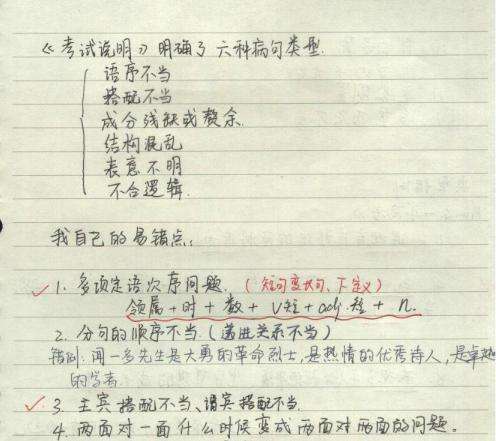 《考试说明》明确了六种病句类型.
语序不当
搭配不当
成分残缺或赘余.
结构混乱
表意不明
不合逻辑.
我自己的易错点:
✓ 1. 多项定语次序问题. (短句变长句、下定义)
领属+时+数+V短+adj.短+n.
2. 分句的顺序不当.(递进关系不当)
错例: 闻一多先生是大勇的革命烈士,是热情的优秀诗人,是卓越
的学者.
✓ 3. 主宾搭配不当、谓宾搭配不当.
4. 两面对一面 什么时候变成两面对两面的问题。